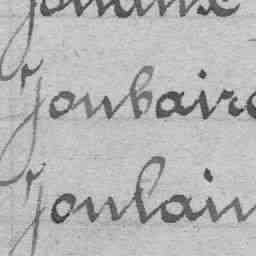 Joubaire
Joulain